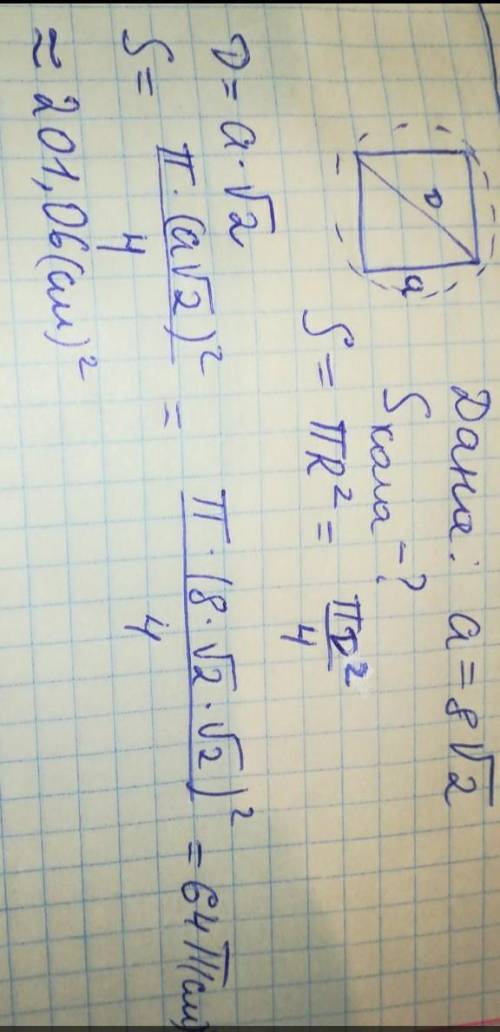 Дане: a = 8√2
Sкола - ?
D
a
S = πR² = πD²/4
D = a·√2
S = π·(a√2)²/4 = π·(8·√2·√2)²/4 = 64π(см)
≈ 201,06(см)²